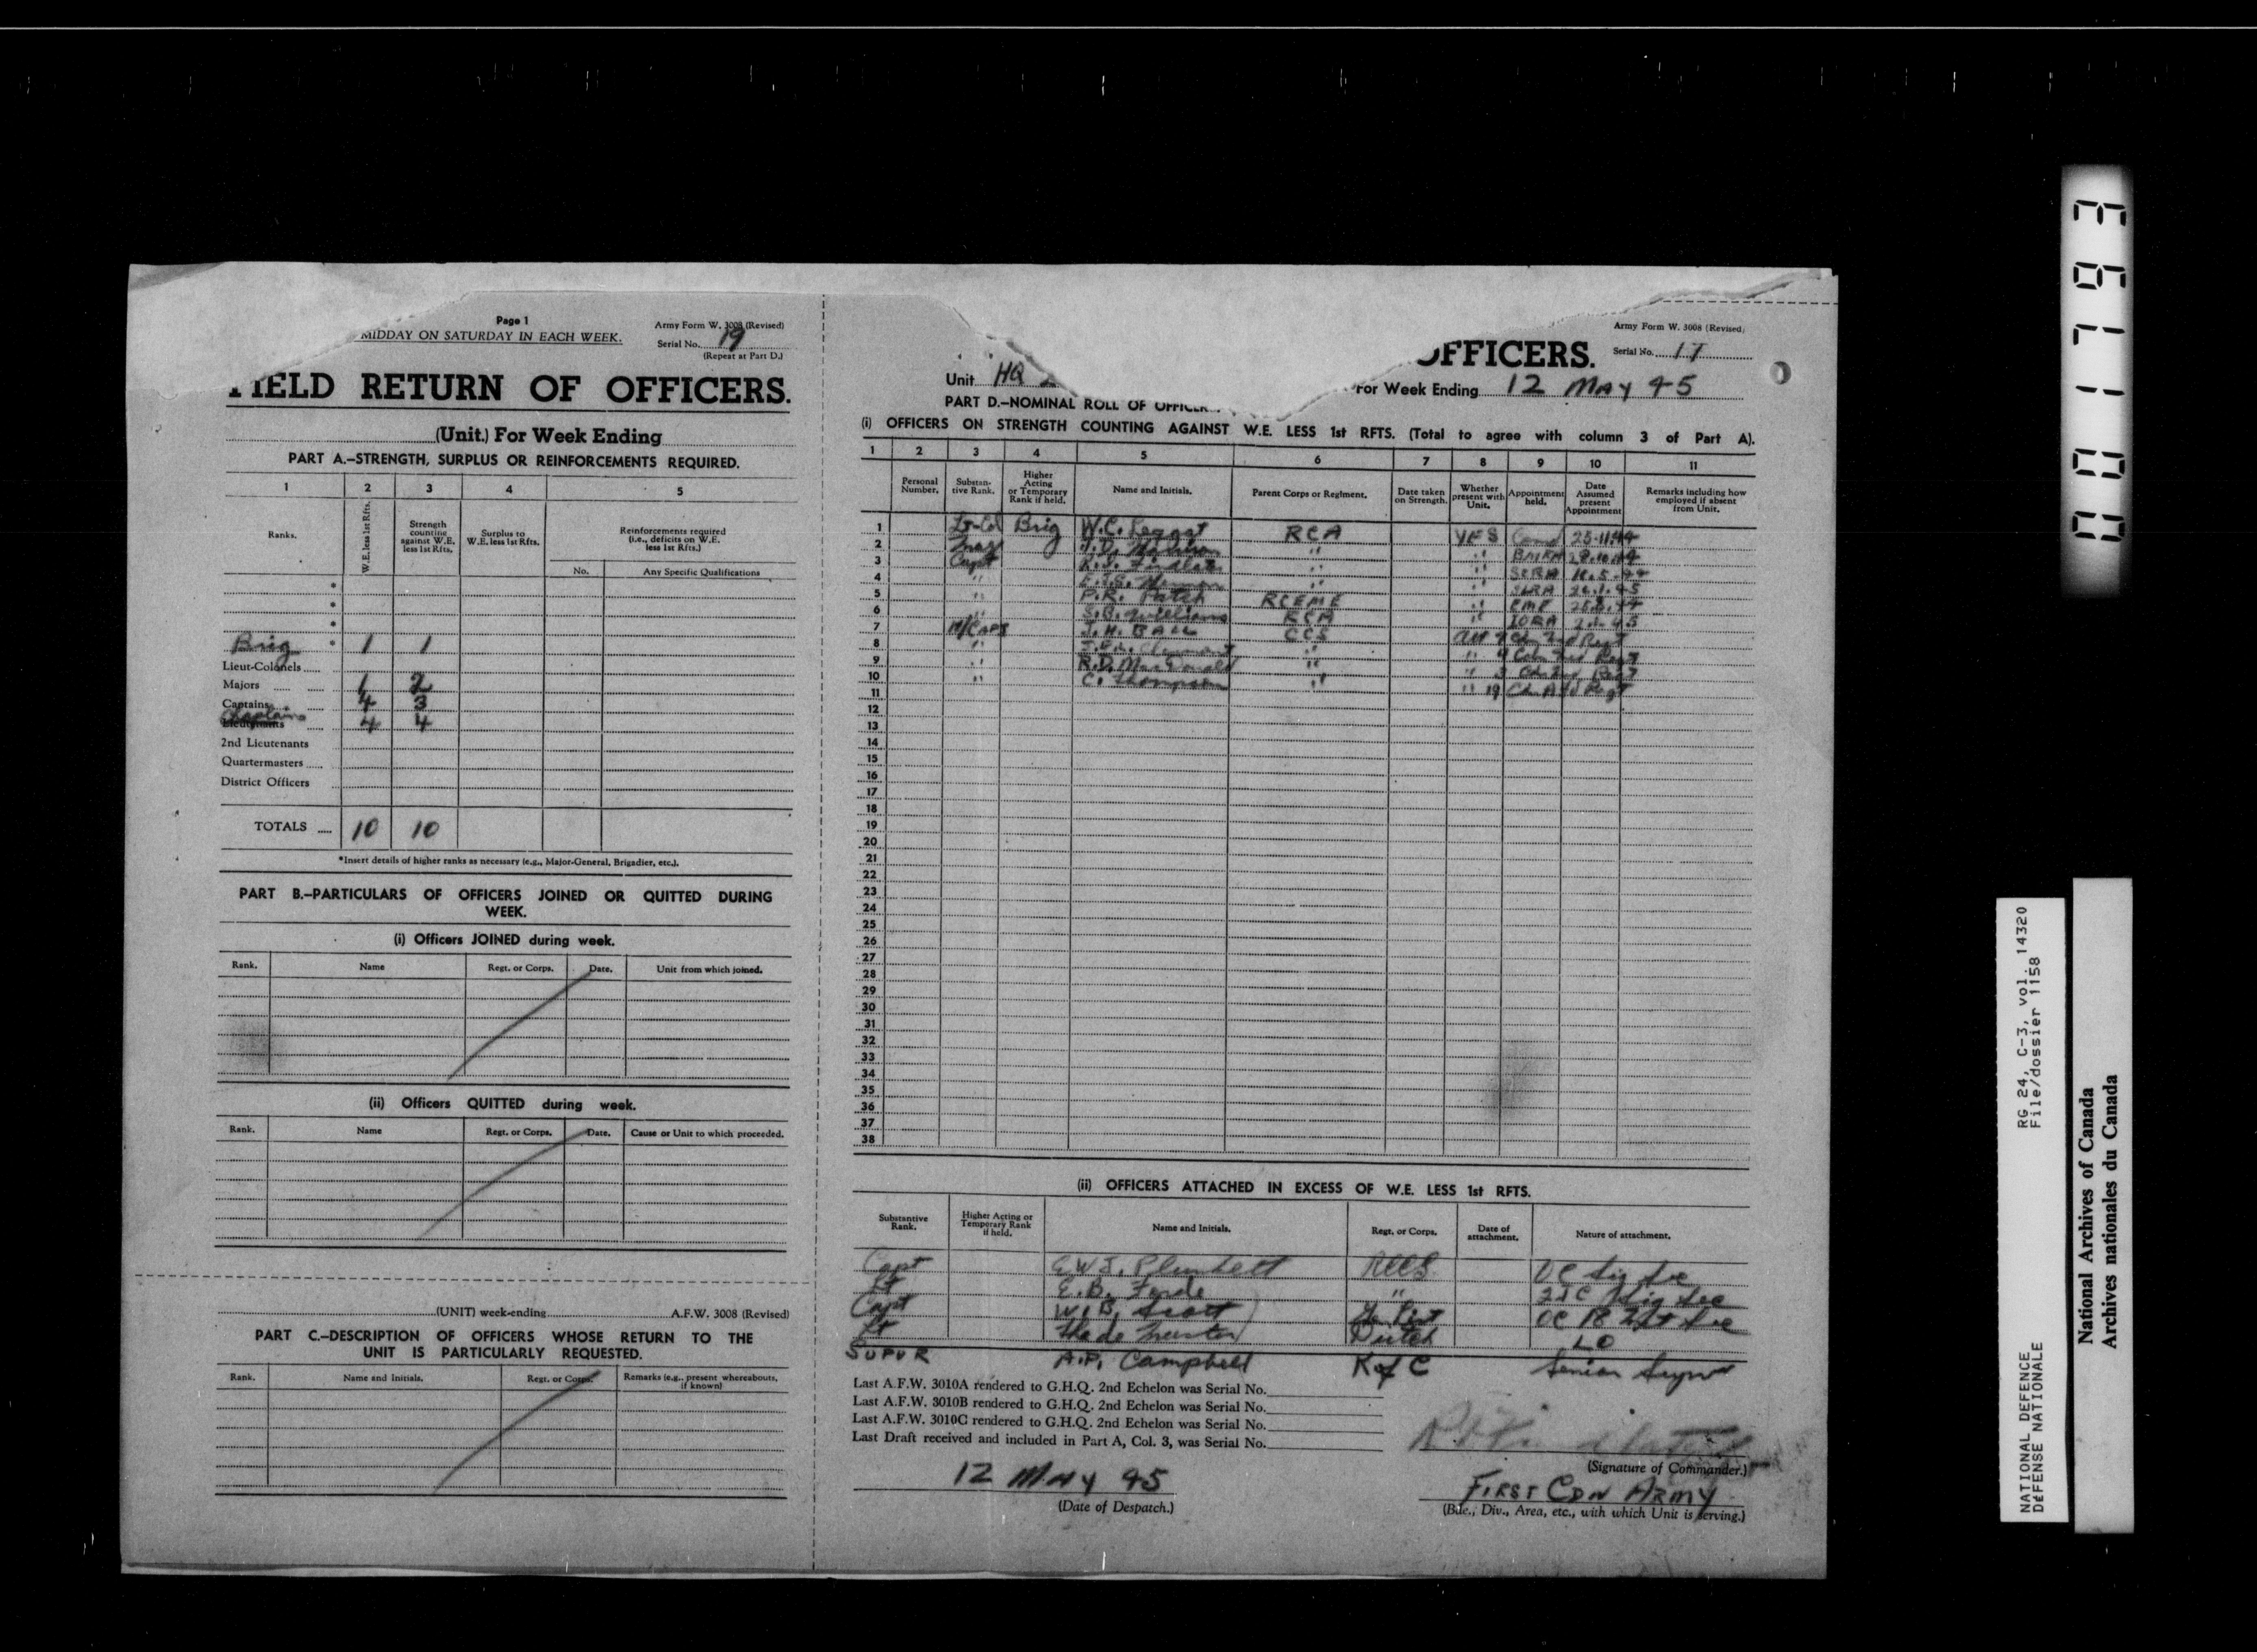 Page 1
MIDDAY ON SATURDAY IN EACH WEEK.
Army Form W. 3008 (Revised)
Serial No. 19
(Repeat at Part D.)
FIELD RETURN OF OFFICERS.
(Unit.) For Week Ending
PART A.—STRENGTH, SURPLUS OR REINFORCEMENTS REQUIRED.
1 2 3 4 5
Ranks.
W.E. less 1st Rfts.
Strength counting against W.E. less 1st Rfts.
Surplus to W.E. less 1st Rfts.
Reinforcements required (i.e., deficits on W.E. less 1st Rfts.)
No. Any Specific Qualifications
*
*
*
Brig * 1 1
Lieut-Colonels
Majors 1 2
Captains 4 3
Chaplains Lieutenants 4 4
2nd Lieutenants
Quartermasters
District Officers
TOTALS 10 10
*Insert details of higher ranks as necessary (e.g., Major-General, Brigadier, etc.).
PART B.—PARTICULARS OF OFFICERS JOINED OR QUITTED DURING
WEEK.
(i) Officers JOINED during week.
Rank. Name Regt. or Corps. Date. Unit from which joined.
(ii) Officers QUITTED during week.
Rank. Name Regt. or Corps. Date. Cause or Unit to which proceeded.
(UNIT) week-ending A.F.W. 3008 (Revised)
PART C.—DESCRIPTION OF OFFICERS WHOSE RETURN TO THE
UNIT IS PARTICULARLY REQUESTED.
Rank. Name and Initials. Regt. or Corps. Remarks (e.g., present whereabouts, if known)
Army Form W. 3008 (Revised)
OFFICERS. Serial No.
Unit HQ 2 For Week Ending 12 MAY 45
PART D.—NOMINAL ROLL OF OFFICER
(i) OFFICERS ON STRENGTH COUNTING AGAINST W.E. LESS 1st RFTS. (Total to agree with column 3 of Part A).
1 2 3 4 5 6 7 8 9 10 11
Personal Number.
Substantive Rank.
Higher Acting or Temporary Rank if held.
Name and Initials.
Parent Corps or Regiment.
Date taken on Strength.
Whether present with Unit.
Appointment held.
Date Assumed present Appointment
Remarks including how employed if absent from Unit.
1 Lt-Col Brig W.C. RCA YES Comd 25-11-44
2 Maj "
3 Capt "
4 " "
5 " P.R. Patch RCEME
6 " S.B. Williams RCA IORA
7 H/Capt J.H. BALL CCS
8 " "
9 " R.D. MacDonald "
10 " C. Thompson " " 19
11
12
13
14
15
16
17
18
19
20
21
22
23
24
25
26
27
28
29
30
31
32
33
34
35
36
37
38
(ii) OFFICERS ATTACHED IN EXCESS OF W.E. LESS 1st RFTS.
Substantive Rank. Higher Acting or Temporary Rank if held. Name and Initials. Regt. or Corps. Date of attachment. Nature of attachment.
Capt E.W.J. Plunkett RCCS OC Sig Sec
Lt E.B. Forde " 2IC Sig Sec
Capt W.B. Scott OC
Lt Dutch LO
SUPVR A.P. Campbell K of C Senior Supvr
Last A.F.W. 3010A rendered to G.H.Q. 2nd Echelon was Serial No.
Last A.F.W. 3010B rendered to G.H.Q. 2nd Echelon was Serial No.
Last A.F.W. 3010C rendered to G.H.Q. 2nd Echelon was Serial No.
Last Draft received and included in Part A, Col. 3, was Serial No.
(Signature of Commander.)
12 MAY 45
(Date of Despatch.)
FIRST CDN ARMY
(Bde., Div., Area, etc., with which Unit is serving.)
001793
NATIONAL DEFENCE RG 24, C-3, vol. 14320
DÉFENSE NATIONALE File/dossier 1158
National Archives of Canada
Archives nationales du Canada